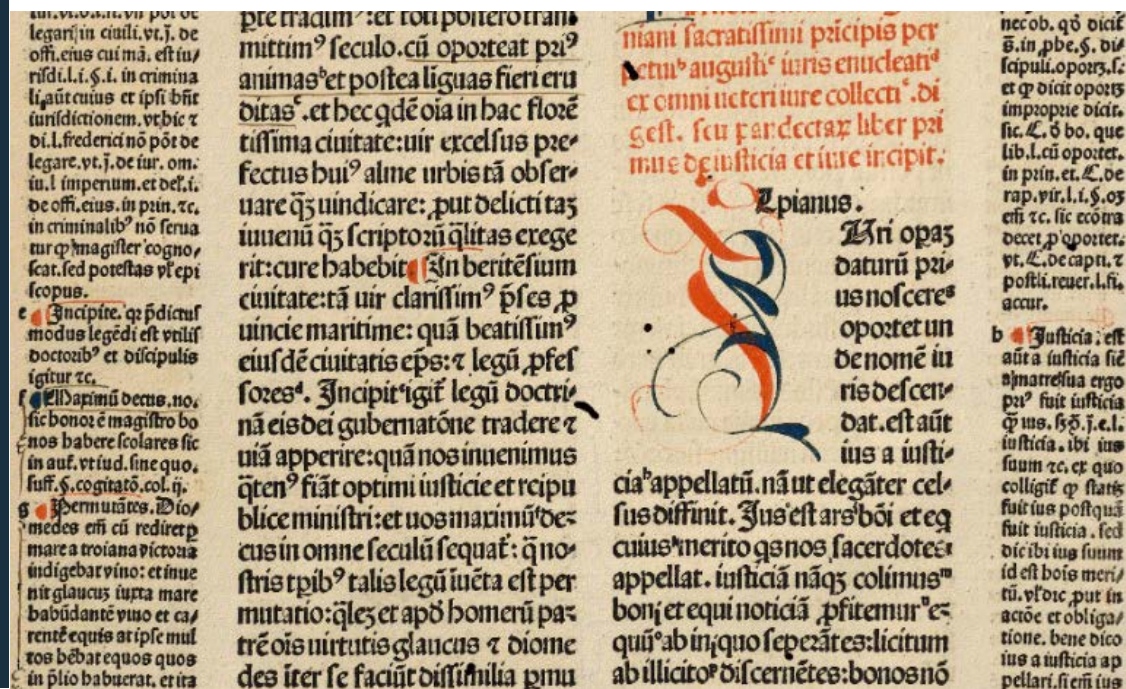 legari in ciuili. vt.j. de
offi. eius cui mã. est iu/
risdi.l.i.§.i. in crimina
li, aũt cuius et ipsi hñt
iurisdictionem. vt hic ⁊
di.l. frederici nõ põt de
legare. vt.j. de iur. om.
iu.l imperium. et def.i.
de offi. eius. in prin. ⁊c.
in criminalibꝰ nõ serua
tur ꝙ magister cogno/
scat. sed potestas vl̓ epi
scopus.
e Incipite. qꝛ p̃dictus
modus legẽdi est vtilis
doctoribꝰ et discipulis
igitur ⁊c.
f Maximũ decus. no.
sic bonor ẽ magistro bo
nos habere scolares sic
in aut. vt iud. sine quo.
suff. §. cogitatõ. col. ij.
g Permutãtes. Dio/
medes em̃ cũ rediret ꝑ
mare a troiana victoria
indigebat vino: et inue
nit glaucuꝫ iuxta mare
habũdantẽ vino et ca/
rentẽ equis at ipse mul
tos hẽbat equos quos
in p̃lio habuerat. et ita
p̃te tradimꝰ: et toti postero tran
mittimꝰ seculo. cũ oporteat priꝰ
animas ᵇ et postea lĩguas fieri eru
ditas ᶜ. et hec qdẽ oĩa in hac florẽ
tissima ciuitate: uir excelsus pre⸗
fectus huiꝰ alme urbis tã obser⸗
uare qꝫ uindicare: ꝓut delicti taꝫ
iuuenũ qꝫ scriptoꝝ q̃litas exege
rit: cure habebit. In beritẽsium
ciuitate: tã uir clarissimꝰ p̃ses ꝓ
uincie maritime: quã beatissimꝰ
eiusdẽ ciuitatis ep̃s: ⁊ legũ ꝓfes
sores ᵈ. Incipit ᵉ igit̃ legũ doctri⸗
nã eis dei gubernatõne tradere ⁊
uiã apperire: quã nos inuenimus
q̃tenꝰ fiãt optimi iusticie et reipu
blice ministri: et uos maximũ ᶠ de⸗
cus in omne seculũ sequat̃: q̃ no⸗
stris tꝑibꝰ talis legũ iuẽta est per
mutatio: q̃leꝫ et apđ homerũ pa⸗
trẽ oĩs uirtutis glaucus ⁊ diome
des iter se faciũt dissimilia ꝑmu
niani sacratissimi prĩcipis per
petui ᵇ augusti ᶜ iuris enucleati ᵈ
ex omni ueteri iure collecti ᵉ. di
gest. seu pandectaꝝ liber pri
mus de iusticia et iure incipit.
Vlpianus.
IVri opaꝫ
daturũ pri⸗
us noscere ᵍ
oportet un
de nomẽ iu
ris descen⸗
dat. est aũt
ius a iusti⸗
cia ʰ appellatũ. nã ut elegãter cel⸗
sus diffinit. Ius est ars bõi et eq
cuius merito qs nos sacerdotes
appellat. iusticiã nãqꝫ colimus ᵐ
boni et equi noticiã ꝓfitemur ⁿ e⸗
quũ ᵒ ab iniquo seperãtes: licitum
ab illicito ᵖ discernẽtes: bonos nõ
nec ob. qđ dicit̃
s̃. in ꝓhe. §. di/
scipuli. oportꝫ. s.
et ꝙ dicit oportꝫ
improprie dicit.
sic. C. đ bo. que
lib.l. cũ oportet.
in prin. et. C. de
rap. vir.l.i.§. oꝫ
em̃ ⁊c. sic ecõtra
decet ꝓ oportet.
vt. C. de capti. ⁊
postli. reuer.l.fi.
accur.
b Iusticia. est
aũt a iusticia sic̃
a matre sua ergo
priꝰ fuit iusticia
q̃ ius. sꝫ ꝯ̃. j. e.l.
iusticia. ibi ius
suum ⁊c. ex quo
colligit̃ ꝙ statiꝫ
fuit ius postquã
fuit iusticia. sed
dic ibi ius suum
id est bõis meri/
tũ. vl̓ dic, put in
actõe et obliga/
tione. bene dico
ius a iusticia ap
pellari. si em̃ ius